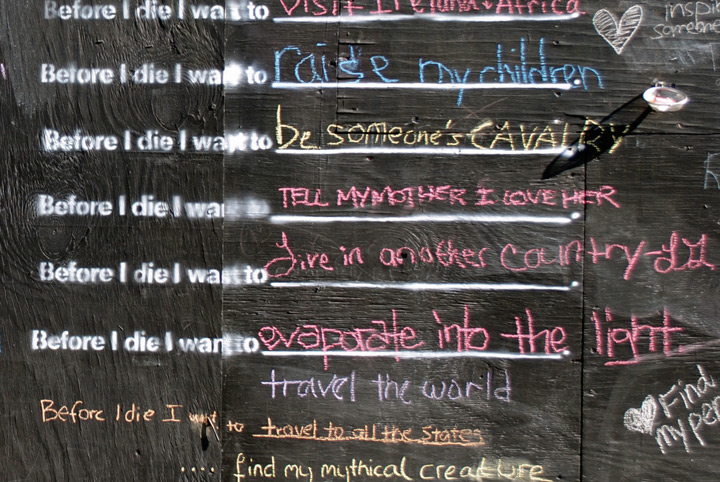 Before I die I want to visit Ireland & Africa
inspire
someone
Before I die I want to raise my children
Before I die I want to be someone's CAVALRY
Before I die I want to TELL MY MOTHER I LOVE HER
Before I die I want to Live in another country-LL
Before I die I want to evaporate into the light
travel the world
Before I die I want to travel to all the states
Find
my per
.... find my mythical creature